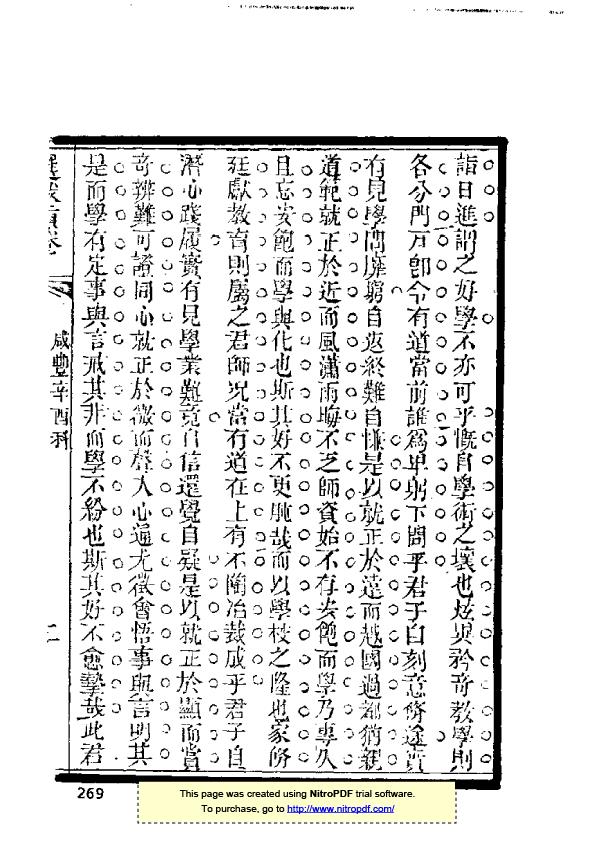 詣日進謂之好學不亦可乎慨自學術之壞也炫異矜奇教學則
各分門戶卽令有道當前誰爲卑躬下問乎君子自刻意脩途實
有見學問雖窮自返終難自慊是以就正於遠而越國過都猶親
道範就正於近而風瀟雨晦不乏師資始不存安飽而學乃專久
且忘安飽而學與化也斯其好不更肫哉而以學校之隆也家脩
廷獻教育則屬之君師况當有道在上有不陶冶裁成乎君子自
潛心踐履實有見學業難竟自信還覺自疑是以就正於顯而賞
奇辨難可證同心就正於微而聲入心通尤徵會悟事與言明其
是而學有定事與言戒其非而學不紛也斯其好不愈摯哉此君
咸豐辛酉科
二
269
This page was created using NitroPDF trial software.
To purchase, go to http://www.nitropdf.com/